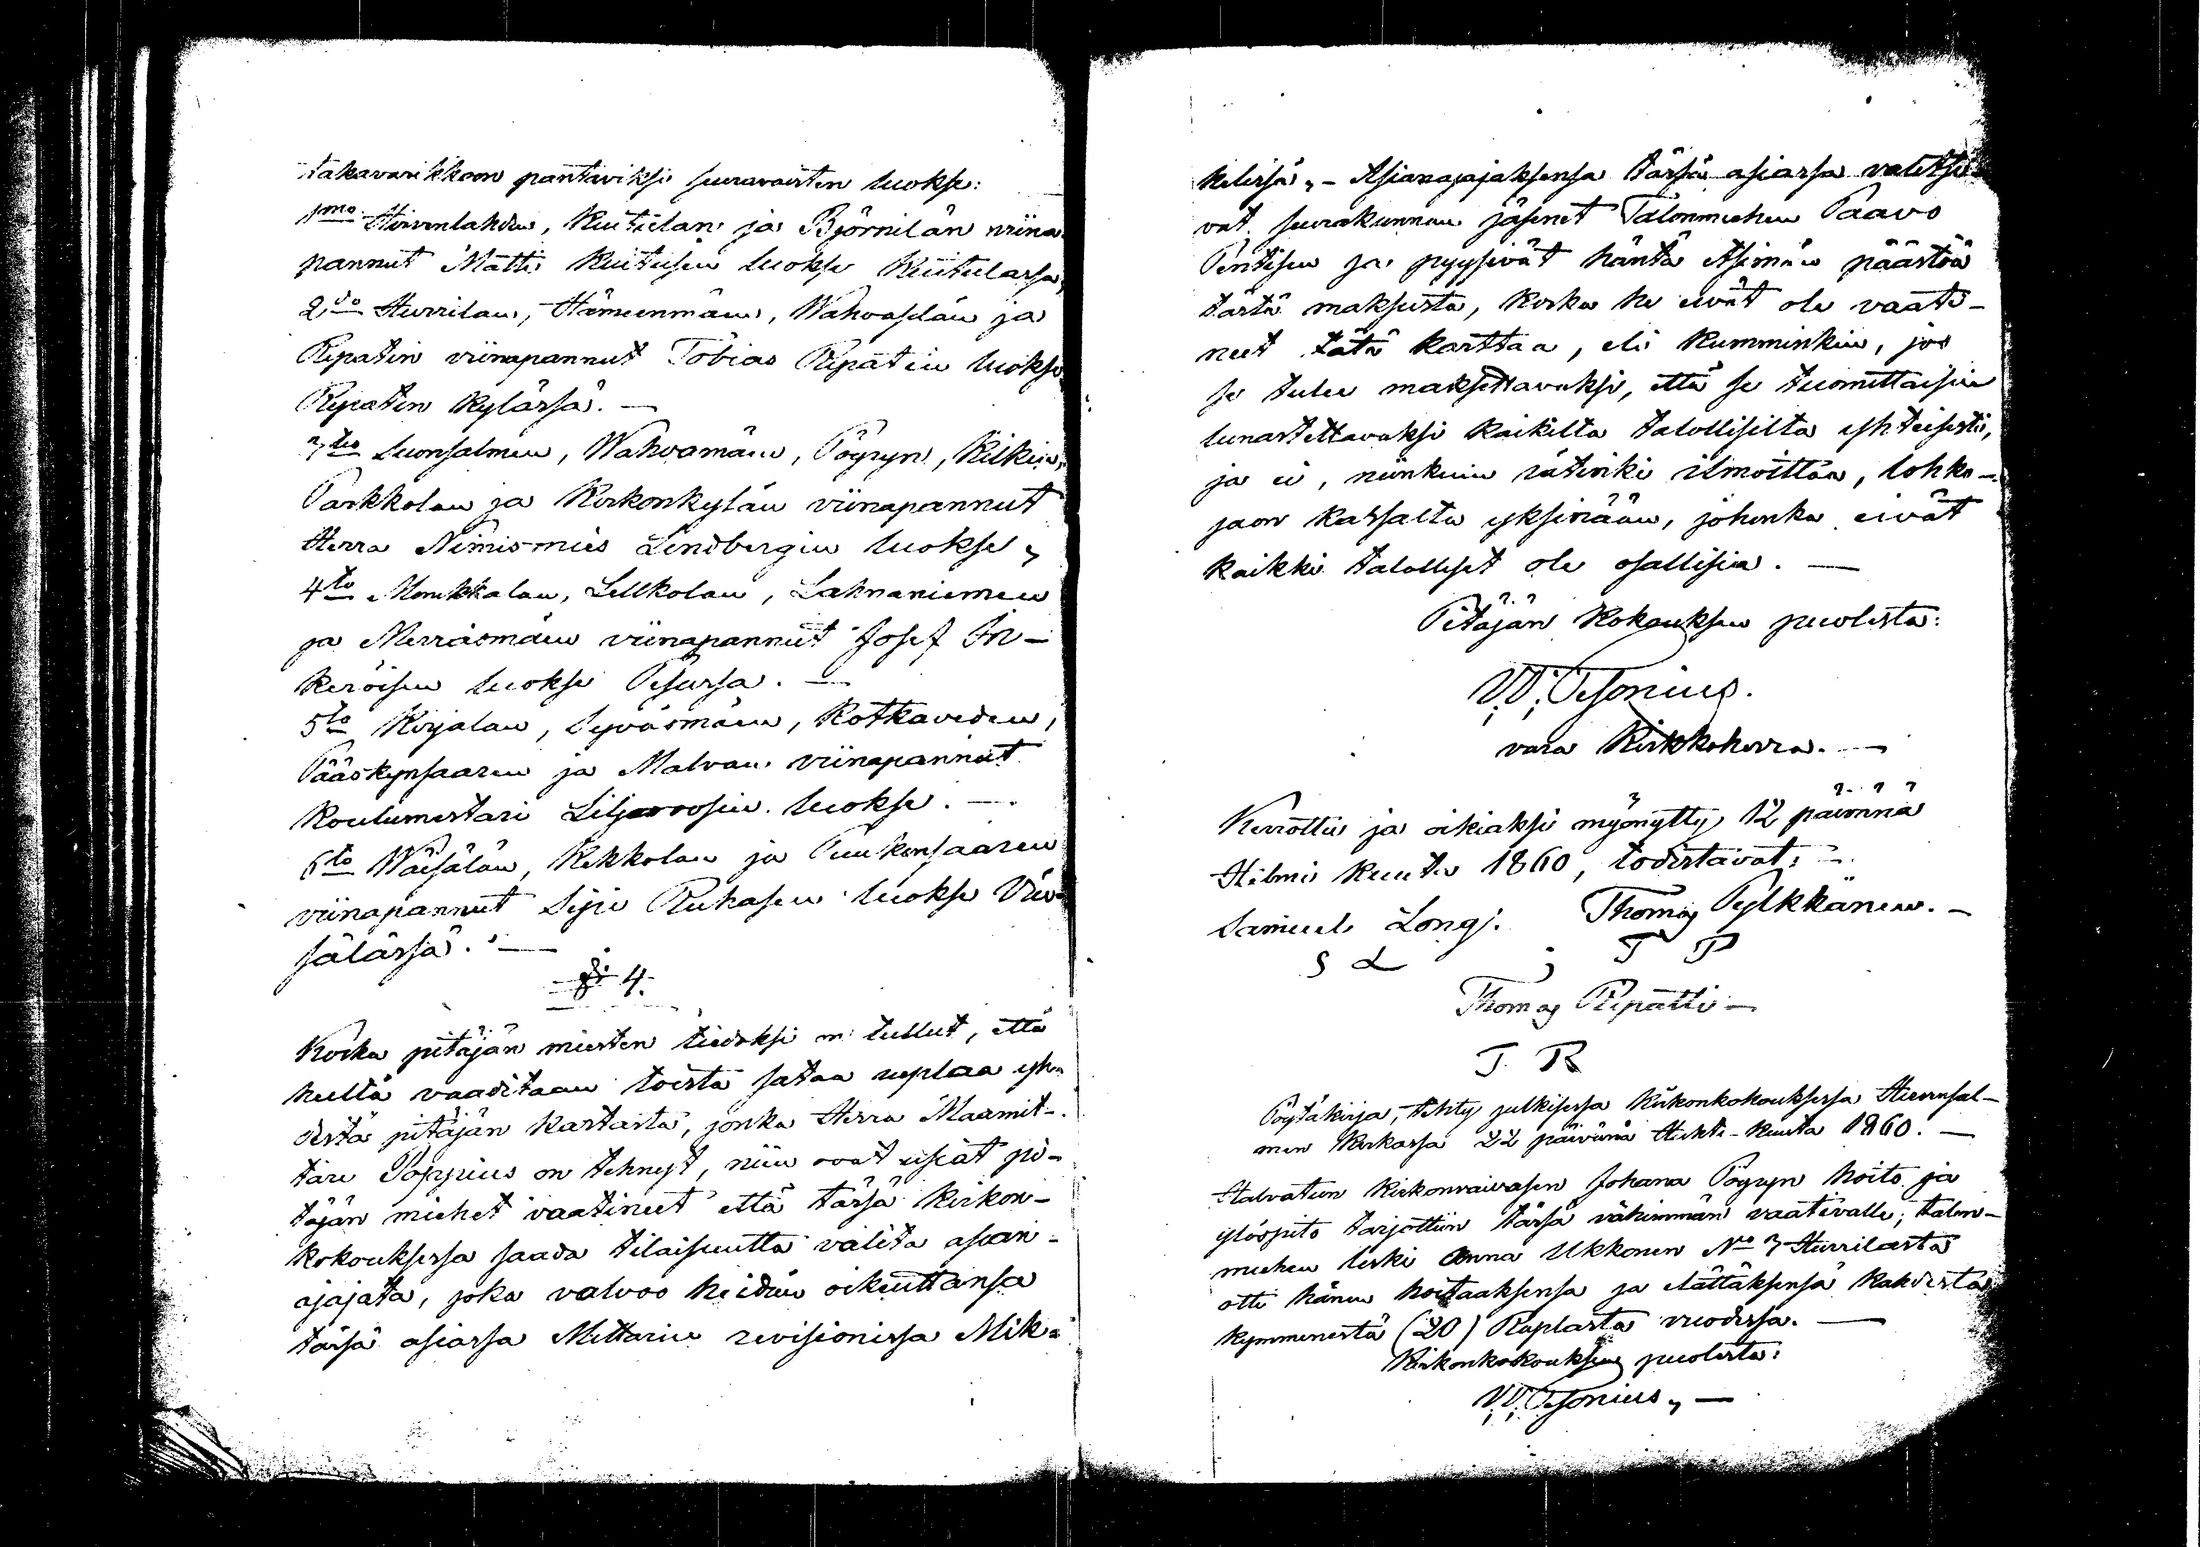 takavarikkoon pantaviksi seuravaisten luokse:
1mo Hirvenlahden, Kuitulan ja Björnilän viina
pannut Matti Kuitusen luokse Kuitulassa,
2do Hurrilan, Hämeenmäen, Wahvaselän ja
Ripatin viinapannut Tobias Ripatin luokse
Ripatin kylässä. —
3tio Luonsalmen, Wahvamäen, Pöyryn, Kilkin,
Parkkolan ja Kirkonkylän viinapannut
Herra Nimismies Lindbergin luokse,
4to Monikkalan, Lellkolan, Lahnaniemen
ja Merrasmäen viinapannut Josef In-
keröisen luokse Pesursa. —
5to Kirjalan, Syväsmäen, Kotkaveden,
Pääskynsaaren ja Malvan viinapannut
Koulumestari Liljeroosin luokse. —
6to Wäisälän, Kekkolan ja Puukonsaaren
viinapannut Sipi Ruhasen luokse Väi-
sälässä. —
§ 4.
Koska pitäjän miesten tiedoksi on tullut, että
heiltä vaaditaan toista sataa ruplaa yh-
destä pitäjän kartasta, jonka Herra Maamit-
tari Poppius on tehnyt, niin ovat useat pi-
täjän miehet vaatineet että tässä kirkon-
kokouksessa saada tilaisuutta valita asian-
ajajata, joka valvoo heidän oikeuttansa
tässä asiassa Mittarin revisionissa Mik-
kelissä, – Asianajajaksensa tässä asiassa valitsi-
vat seurakunnan jäsenet Talonmiehen Paavo
Pentisen ja pyysivät häntä etsimän päästöä
tästä maksusta, koska he eivät ole vaati-
neet tätä karttaa, eli kumminkin, jos
se tulee maksettavaksi, että se tuomittaisiin
lunastettavaksi kaikilta talollisilta yhteisesti,
ja ei, niinkuin rätinki ilmoittaa, lohko-
jaon kassalta yksinään, johonka eivät
kaikki talolliset ole osallisia. —
Pitäjän kokouksen puolesta:
W. Pesonius.
vara Kirkkoherra. —
Kerrottu ja oikiaksi myönytty 12 päivänä
Helmi kuuta 1860, todistavat:
Samuel Long. Thomas Pylkkänen. —
S L ; T P
Thomas Ripatti —
T. R
Pöytäkirja, tehty julkisessa kirkonkokouksessa Hirvensal-
men kirkossa 22 päivänä Huhti-kuuta 1860. —
Halvatun kirkonvaivasen Johana Pöyryn hoito ja
ylöspito tarjottiin tässä vähimmän vaativalle; talon-
miehen leski Anna Ukkonen No 3 Hurrilasta
otti hänen hoitaaksensa ja elättäksensä kahdesta
kymmenestä (20) Ruplasta vuodessa. —
Kirkonkokouksen puolesta:
W. Pesonius, —